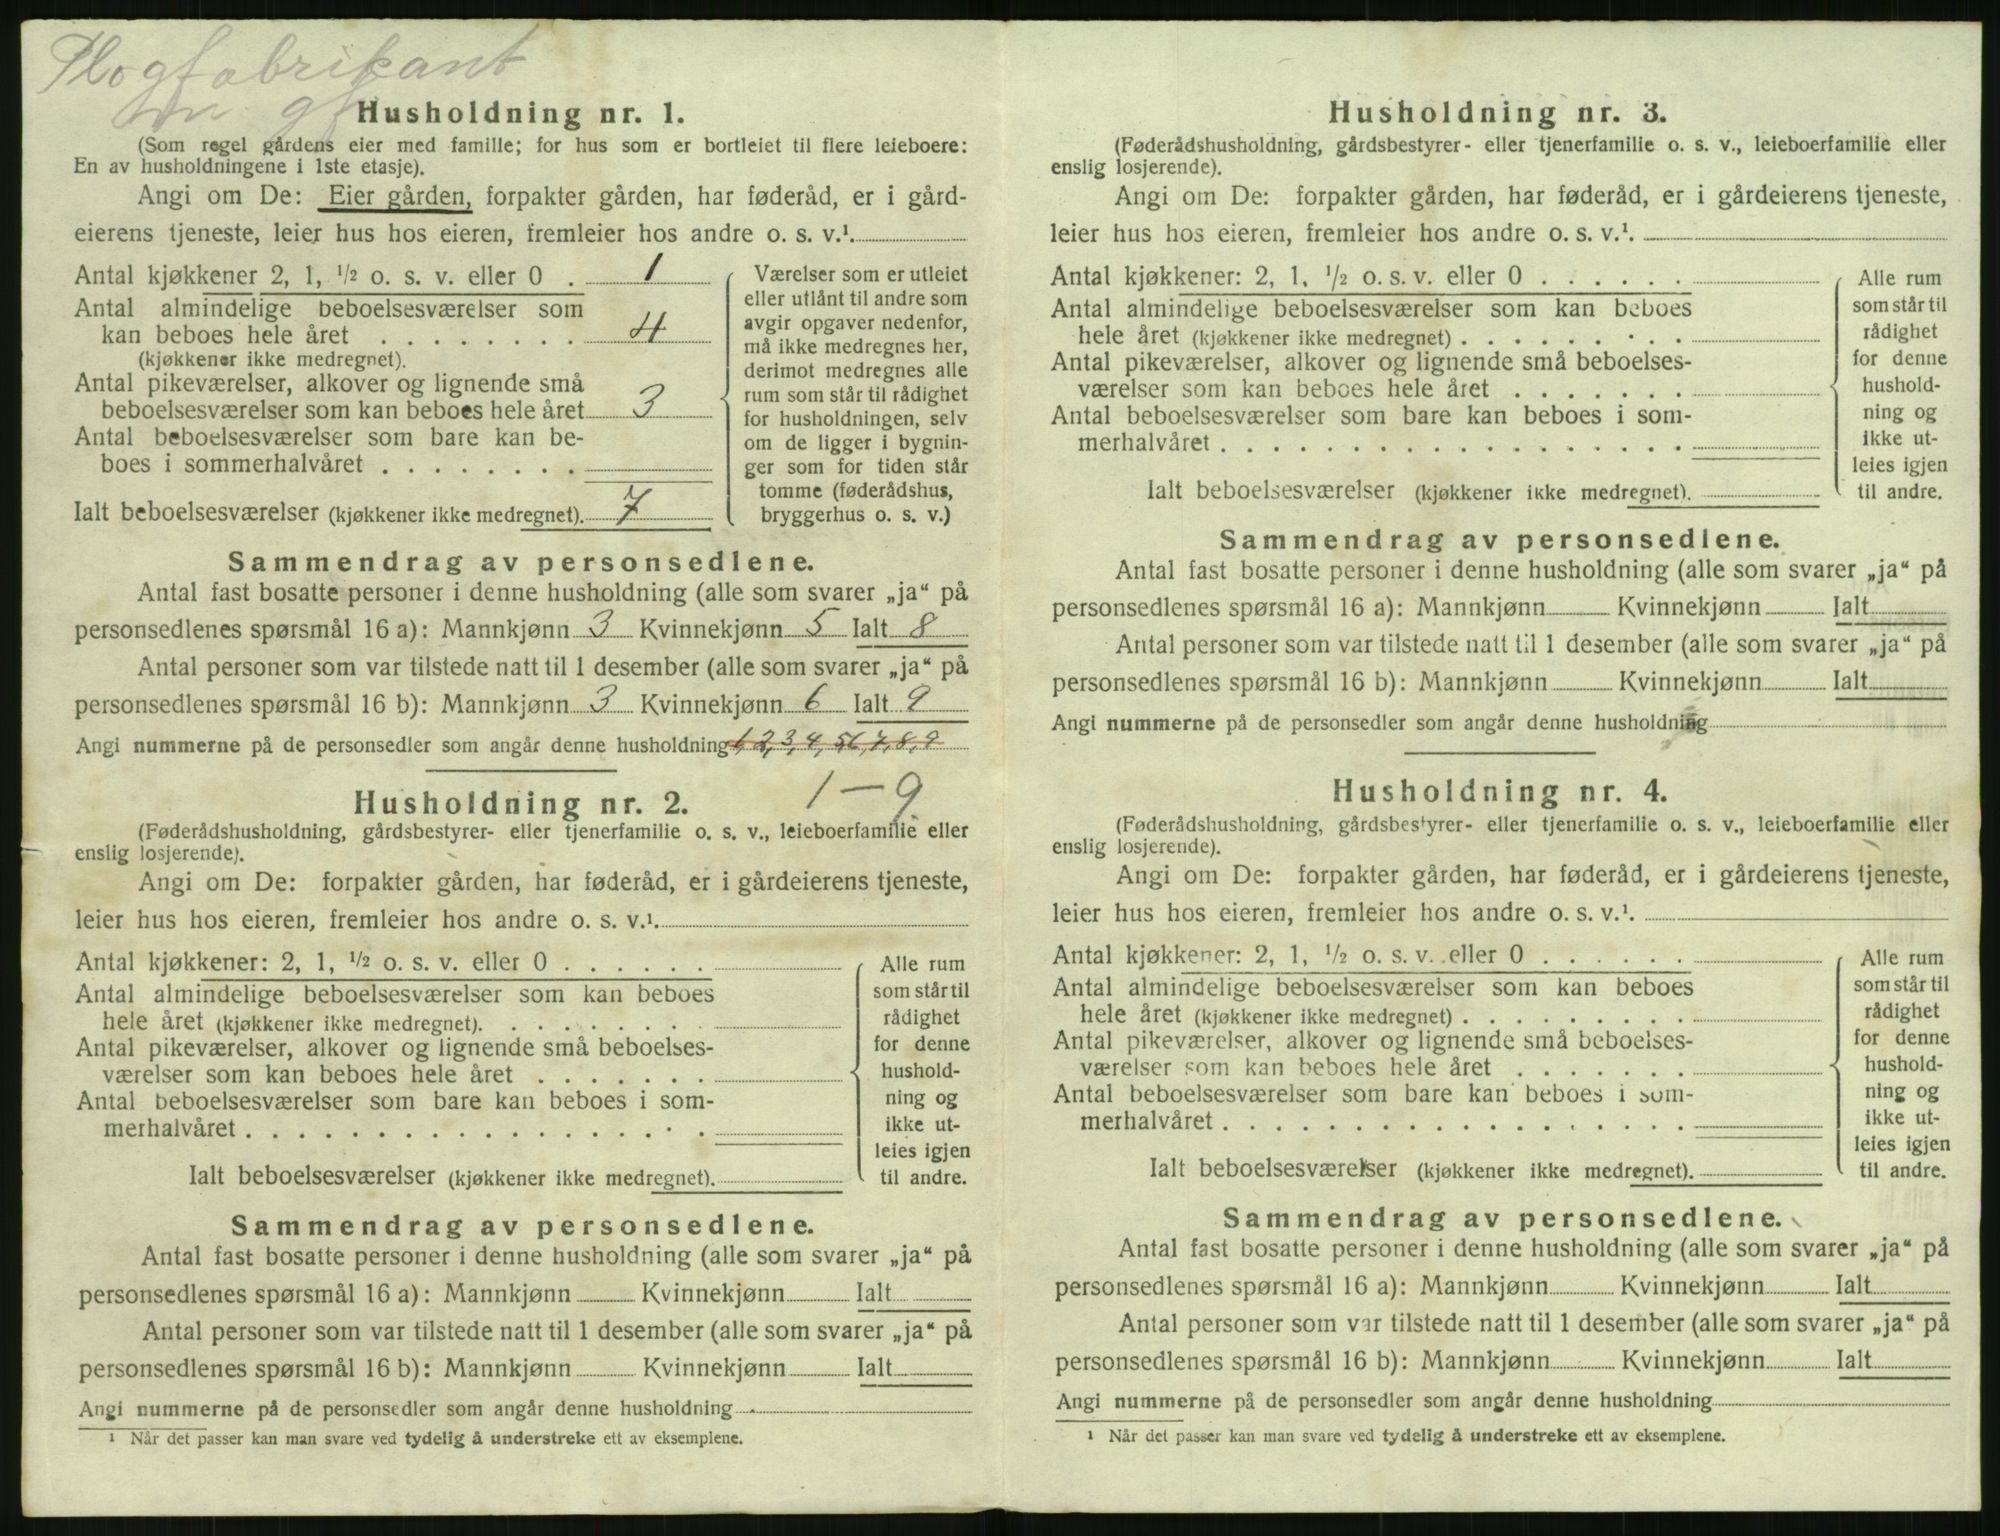 Plogfabrikant
m. gf
Husholdning nr. 1.
(Som regel gårdens eier med familie; for hus som er bortleiet til flere leieboere:
En av husholdningene i 1ste etasje).
Angi om De: Eier gården, forpakter gården, har føderåd, er i gård-
eierens tjeneste, leier hus hos eieren, fremleier hos andre o. s. v.¹.
Antal kjøkkener 2, 1, ½ o. s. v. eller 0 . 1
Antal almindelige beboelsesværelser som
kan beboes hele året . . . . . . . . 4
(kjøkkener ikke medregnet).
Antal pikeværelser, alkover og lignende små
beboelsesværelser som kan beboes hele året 3
Antal beboelsesværelser som bare kan be-
boes i sommerhalvåret . . . . . . . .
Ialt beboelsesværelser (kjøkkener ikke medregnet). 7
Værelser som er utleiet
eller utlånt til andre som
avgir opgaver nedenfor,
må ikke medregnes her,
derimot medregnes alle
rum som står til rådighet
for husholdningen, selv
om de ligger i bygnin-
ger som for tiden står
tomme (føderådshus,
bryggerhus o. s. v.)
Sammendrag av personsedlene.
Antal fast bosatte personer i denne husholdning (alle som svarer „ja“ på
personsedlenes spørsmål 16 a): Mannkjønn 3 Kvinnekjønn 5 Ialt 8
Antal personer som var tilstede natt til 1 desember (alle som svarer „ja“ på
personsedlenes spørsmål 16 b): Mannkjønn 3 Kvinnekjønn 6 Ialt 9
Angi nummerne på de personsedler som angår denne husholdning 1,2,3,4,5,6,7,8,9
1 — 9
Husholdning nr. 2.
(Føderådshusholdning, gårdsbestyrer- eller tjenerfamilie o. s. v., leieboerfamilie eller
enslig losjerende).
Angi om De: forpakter gården, har føderåd, er i gårdeierens tjeneste,
leier hus hos eieren, fremleier hos andre o. s. v.¹.
Antal kjøkkener: 2, 1, ½ o. s. v. eller 0 . . . . . .
Antal almindelige beboelsesværelser som kan beboes
hele året (kjøkkener ikke medregnet). . . . . . . . .
Antal pikeværelser, alkover og lignende små beboelses-
værelser som kan beboes hele året . . . . . . .
Antal beboelsesværelser som bare kan beboes i som-
merhalvåret . . . . . . . . . . . . . . . . . .
Ialt beboelsesværelser (kjøkkener ikke medregnet).
Alle rum
som står til
rådighet
for denne
hushold-
ning og
ikke ut-
leies igjen
til andre.
Sammendrag av personsedlene.
Antal fast bosatte personer i denne husholdning (alle som svarer „ja“ på
personsedlenes spørsmål 16 a): Mannkjønn Kvinnekjønn Ialt
Antal personer som var tilstede natt til 1 desember (alle som svarer „ja“ på
personsedlenes spørsmål 16 b): Mannkjønn Kvinnekjønn Ialt
Angi nummerne på de personsedler som angår denne husholdning
¹ Når det passer kan man svare ved tydelig å understreke ett av eksemplene.
Husholdning nr. 3.
(Føderådshusholdning, gårdsbestyrer- eller tjenerfamilie o. s. v., leieboerfamilie eller
enslig losjerende).
Angi om De: forpakter gården, har føderåd, er i gårdeierens tjeneste,
leier hus hos eieren, fremleier hos andre o. s. v.¹.
Antal kjøkkener: 2, 1, ½ o. s. v. eller 0 . . . . . .
Antal almindelige beboelsesværelser som kan beboes
hele året (kjøkkener ikke medregnet) . . . . . . . . .
Antal pikeværelser, alkover og lignende små beboelses-
værelser som kan beboes hele året . . . . . . .
Antal beboelsesværelser som bare kan beboes i som-
merhalvåret . . . . . . . . . . . . . . . . . .
Ialt beboelsesværelser (kjøkkener ikke medregnet).
Alle rum
som står til
rådighet
for denne
hushold-
ning og
ikke ut-
leies igjen
til andre.
Sammendrag av personsedlene.
Antal fast bosatte personer i denne husholdning (alle som svarer „ja“ på
personsedlenes spørsmål 16 a): Mannkjønn Kvinnekjønn Ialt
Antal personer som var tilstede natt til 1 desember (alle som svarer „ja“ på
personsedlenes spørsmål 16 b): Mannkjønn Kvinnekjønn Ialt
Angi nummerne på de personsedler som angår denne husholdning
Husholdning nr. 4.
(Føderådshusholdning, gårdsbestyrer- eller tjenerfamilie o. s. v., leieboerfamilie eller
enslig losjerende).
Angi om De: forpakter gården, har føderåd, er i gårdeierens tjeneste,
leier hus hos eieren, fremleier hos andre o. s. v.¹.
Antal kjøkkener: 2, 1, ½ o. s. v. eller 0 . . . . . .
Antal almindelige beboelsesværelser som kan beboes
hele året (kjøkkener ikke medregnet) . . . . . . . . .
Antal pikeværelser, alkover og lignende små beboelses-
værelser som kan beboes hele året . . . . . . .
Antal beboelsesværelser som bare kan beboes i som-
merhalvåret . . . . . . . . . . . . . . . . . .
Ialt beboelsesværelser (kjøkkener ikke medregnet).
Alle rum
som står til
rådighet
for denne
hushold-
ning og
ikke ut-
leies igjen
til andre.
Sammendrag av personsedlene.
Antal fast bosatte personer i denne husholdning (alle som svarer „ja“ på
personsedlenes spørsmål 16 a): Mannkjønn Kvinnekjønn Ialt
Antal personer som var tilstede natt til 1 desember (alle som svarer „ja“ på
personsedlenes spørsmål 16 b): Mannkjønn Kvinnekjønn Ialt
Angi nummerne på de personsedler som angår denne husholdning
¹ Når det passer kan man svare ved tydelig å understreke ett av eksemplene.